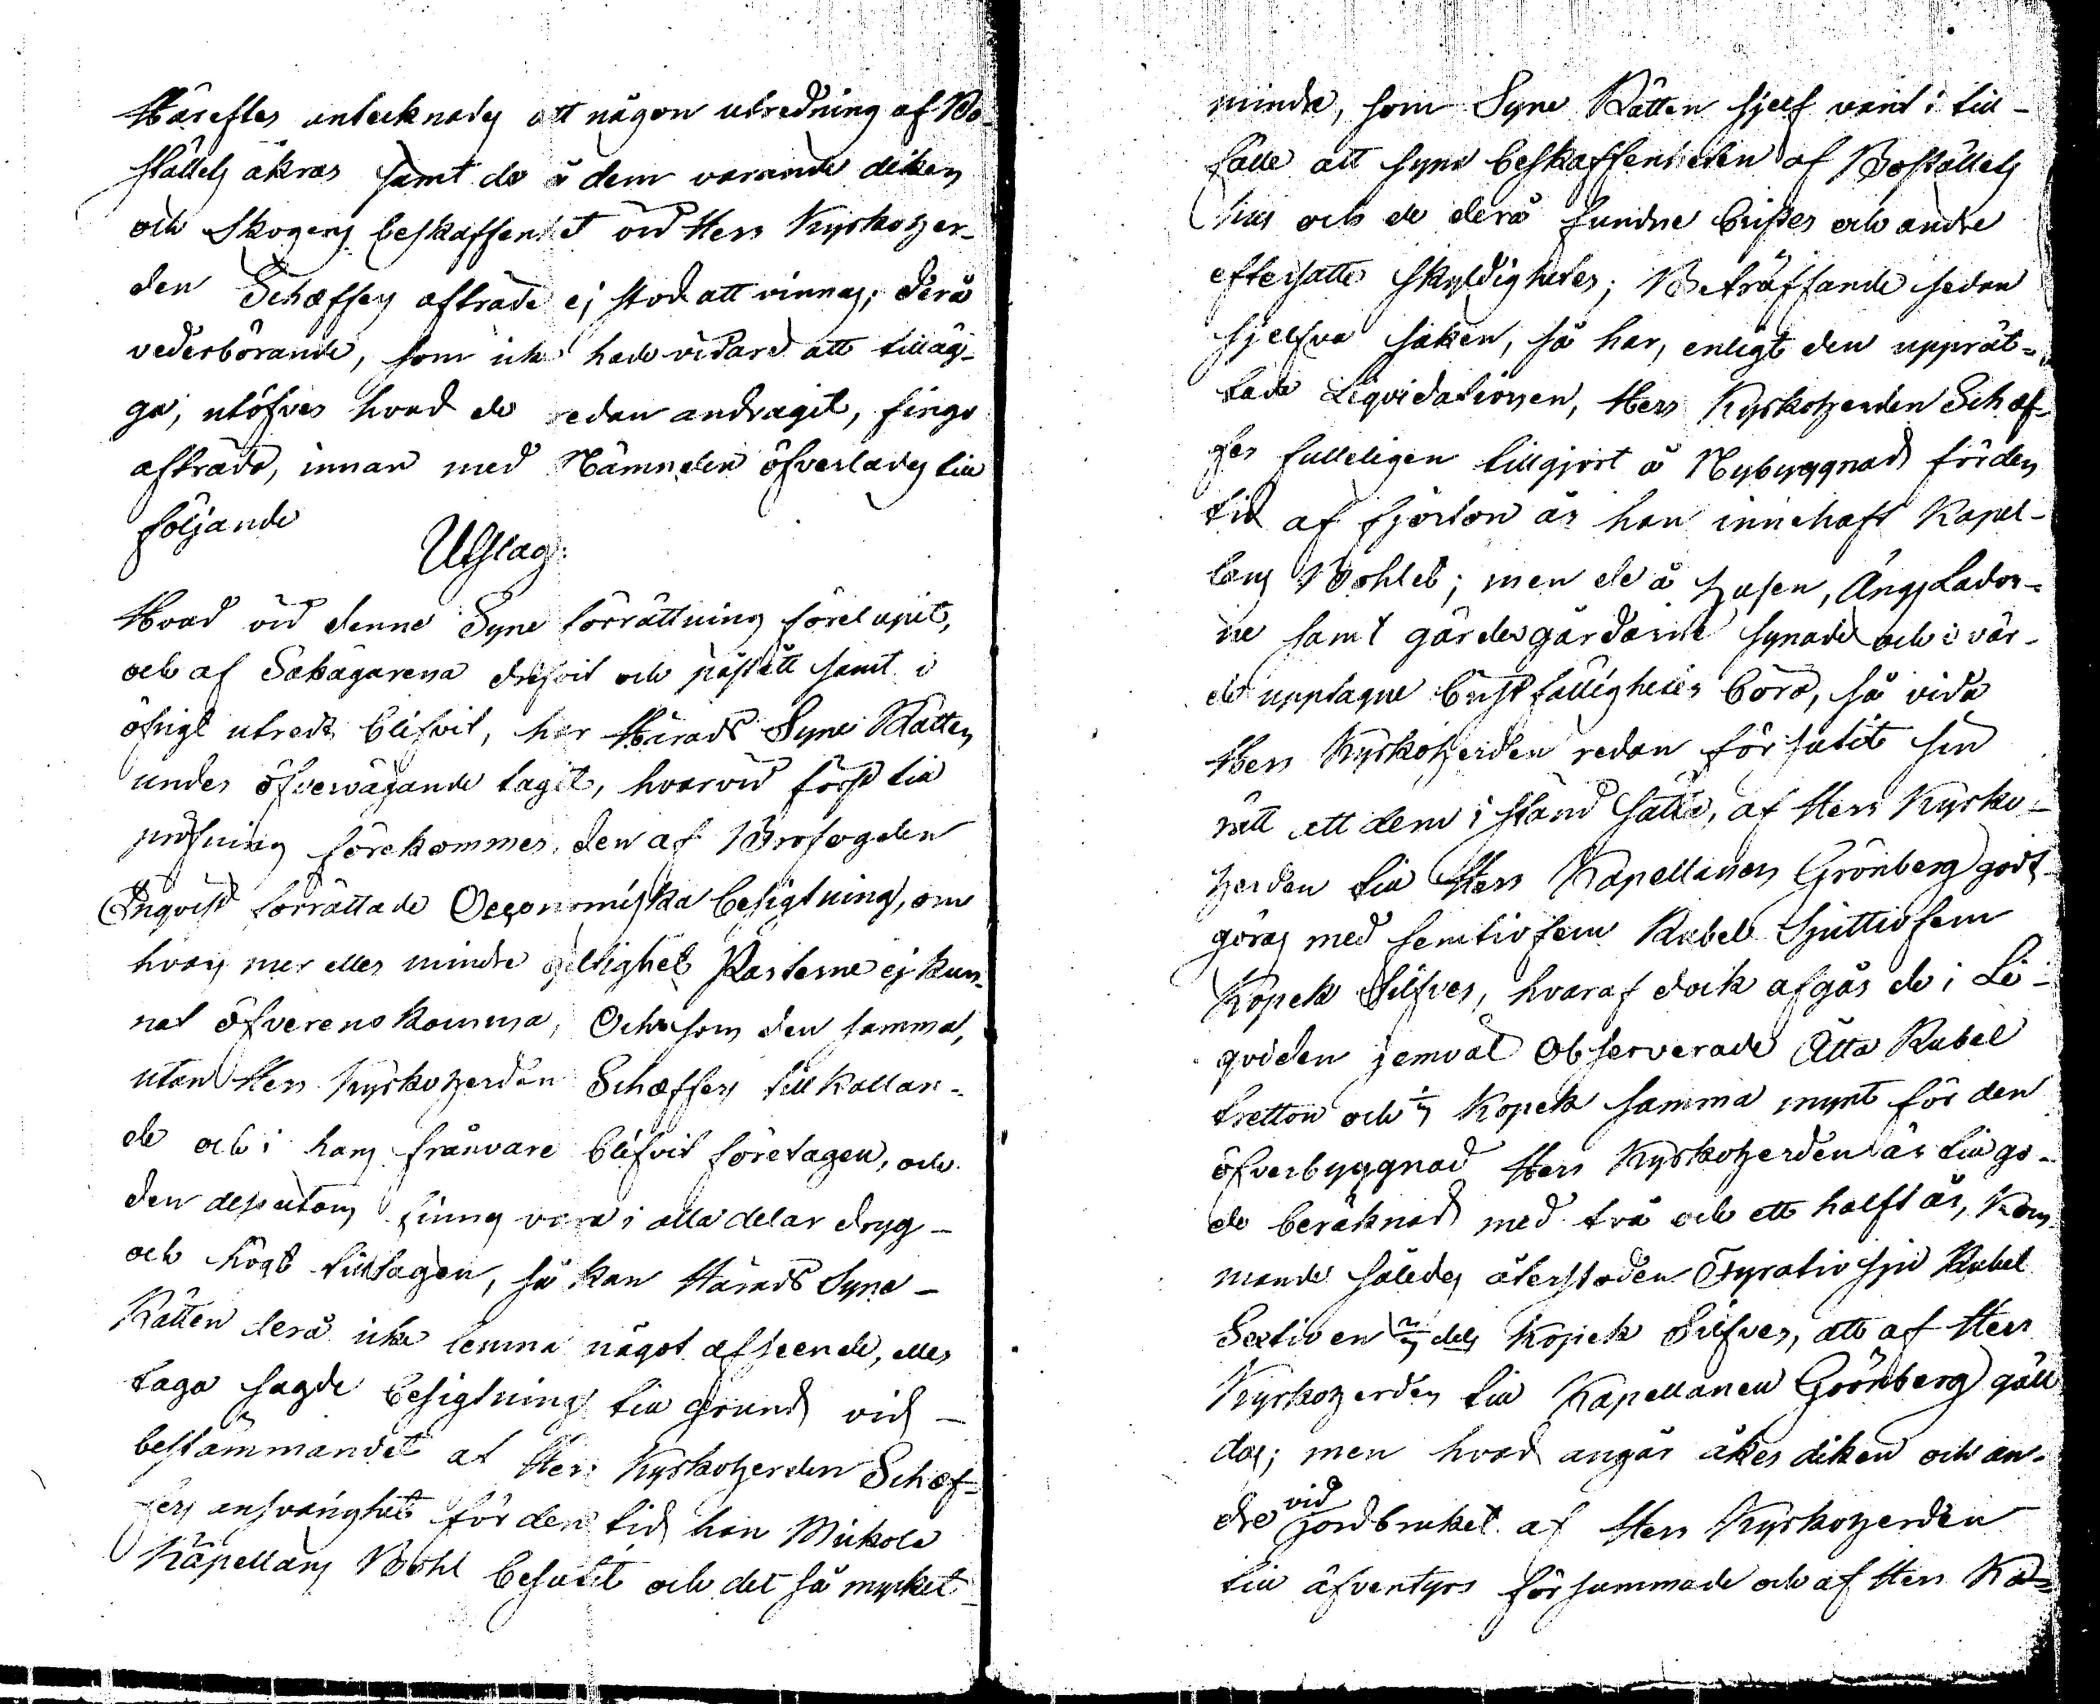 Härefter antecknades att någon utredning af Bo-
ställets åkrar samt de å dem varande diken
och skogens beskaffenhet vid Herr Kyrkoher-
den Schæffers afträde ej stod att vinnas; derå
vederbörande, som icke hade vidare att tilläg-
ga, utöfver hvad de redan andragit, fingo
afträda, innan med Nämnden öfverlades till
följande
Utslag:
Hvad vid denne Syne förrättning förelupit,
och af Sakägarena drifvit och påstått samt i
öfrigt utredt blifvit, har Härads Syne Rätten
under öfvervägande tagit, hvarvid först till
pröfning förekommer, den af Brofogden
Enqvist förrättade Oeconomiska besigtning, om
hvars mer eller mindre giltighet Parterne ej kun-
nat öfverenskomma, Och som den samma,
utan Herr Kyrkoherden Schæffers tillkallan-
de och i hans frånvaro blifvit företagen, och
den dessutom finnes vara i alla delar dryg-
och högt tilltagen, så kan Härads Syne-
Rätten derå icke lemna något afseende, eller
taga sagde besigtning till grund vid-
bestämmandet af Herr Kyrkoherden Schæf-
fers ansvarighet för den tid han Mickola
Kapellans Bohl besutit och det så mycket
mindre, som Syne Rätten sjelf varit i till-
fälle att syna beskaffenheten af Boställets
hus och de derå fundne brister och andre
eftersatte skyldigheter; Beträffande sedan
sjelfva saken, så har, enligt den upprät-
tade Liqvidationen, Herr Kyrkoherden Schæf-
fer fulleligen tillgjort å Nybyggnad för den
tid af fjorton år han innehaft Kapel-
lans Bohlet; men de å husen, Ängs Lador-
ne samt gärdesgårdarne synade och i vär-
de upptagne bristfälligheter böra, så vida
Herr Kyrkoherden redan försutit sin
rätt att dem i stånd sätta, af Herr Kyrko-
herden till Herr Kapellanen Grönberg godt-
göras med femtiofem Rubel Sjuttiofem
Kopek Silfver, hvaraf dock afgår de i Li-
qviden jemväl Observerade Åtta Rubel
tretton och 5/7 Kopek samma mynt för den
öfverbyggnad Herr Kyrkoherden är till go-
de beräknad med två och ett halft år, kom
mande således återstoden Fyratiosju Rubel
Sextioen 2/7 dels Kopek Silfver, att af Herr
Kyrkoherden till Kapellanen Grönberg gäll
das; men hvad angår åker diken och an-
dre vid jordbruket af Herr Kyrkoherden
till äfventyrs försummade och af Herr Ka-